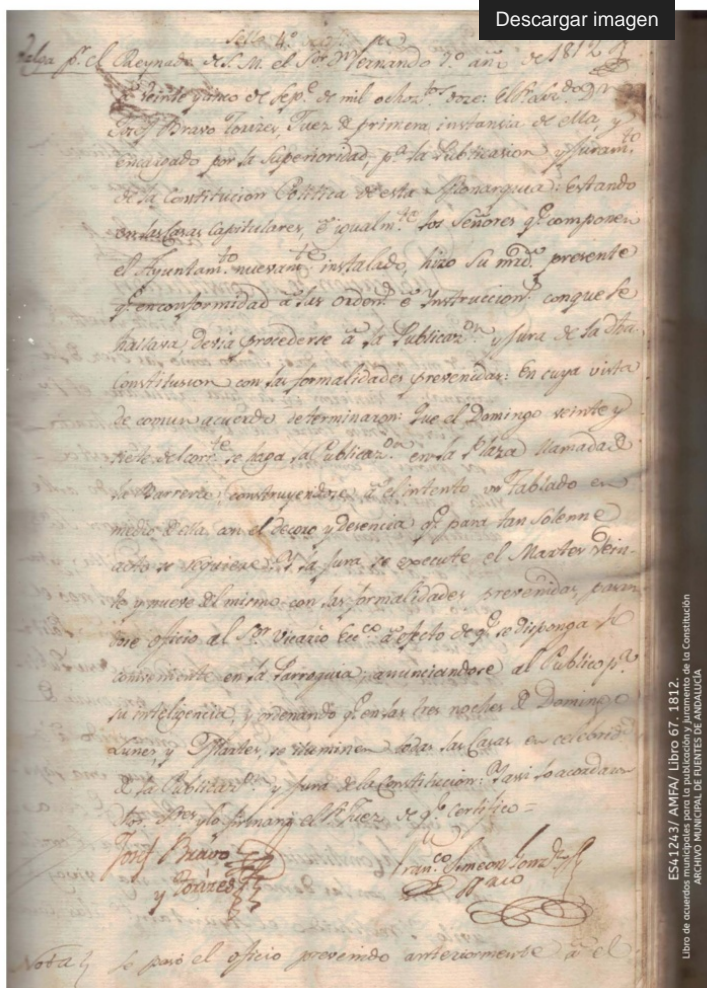 Descargar imagen
Sello 4.º
Valga p.ª el Reynado de S. M. el S.or Dn Fernando 7.º año de 1812
veinte y sinco de Sep.e de mil ochoz.tos doze: El S.r Lic.do Dn
Josef Bravo Torizes, Juez de primera instansia de ella y
encargado por la Superioridad, p.a la Publicasion y Juram.to
de la Constitucion Politica de esta Monarquia: Estando
en las Casas Capitulares, é igualm.te los Señores q.e componen
el Ayuntam.to nuevam.te instalado, hizo su mrd. presente
q.e en conformidad á las ordon.s é Instruccion.s con que se
hallava devia procederse á la Publicaz.on y Jura de la dha
Constitusion con las formalidades prevenidas: En cuya vista
de comun acuerdo determinaron: Que el Domingo veinte y
siete del cor.te se haga la Publicaz.on en la Plaza llamada de
la Barrera, construyendose p.a el intento un Tablado en
medio de ella con el decoro y desencia q.e para tan solemne
acto se requiere. Y la Jura se execute el Martes vein-
te y nueve del mismo con las formalidades prevenidas, pasan
dose oficio al S.or Vicario Ecc.co á efecto de q.e se disponga lo
combeniente en la Parroquia; anunciandose al Publico p.a
su inteligencia, y ordenando q.e en las tres noches de Domingo
Lunes, y Martes, se iluminen todas las Casas en celebrid.
de la Publicaz.on y Jura de la Constitucion: Y asi lo acordaron
y lo firmará el S.r Juez de q.e certifico =
Josef Bravo
y Torizes
Fran.co Simeon
Nota
Se pasó el oficio prevenido anteriormente á el
ES41243/ AMFA/ Libro 67. 1812.
Libro de acuerdos municipales para la publicación y juramento de la Constitución
ARCHIVO MUNICIPAL DE FUENTES DE ANDALUCÍA